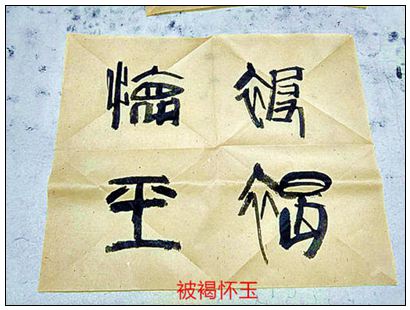 被褐
懷玉
被褐怀玉